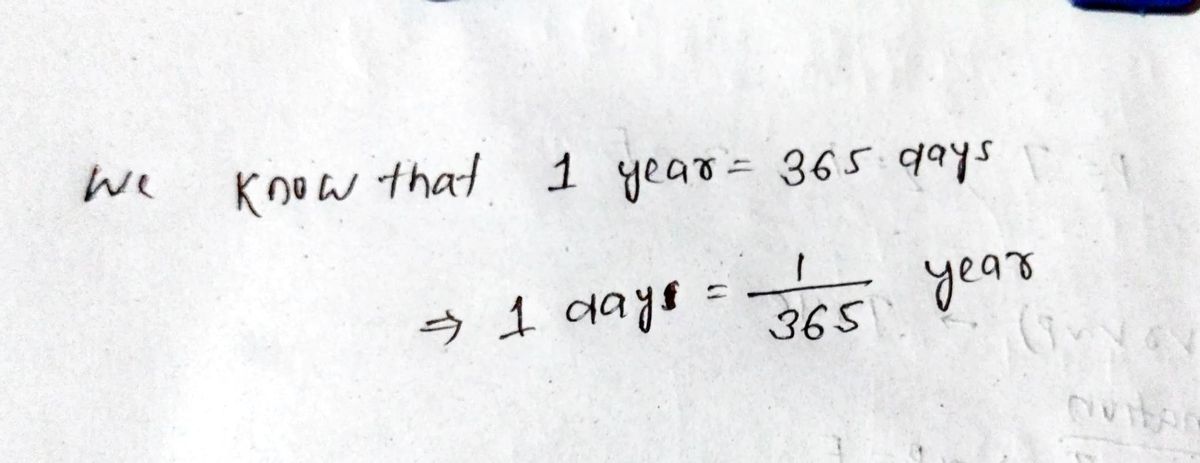 We know that 1 year = 365 days
⇒ 1 days = 1/365 year